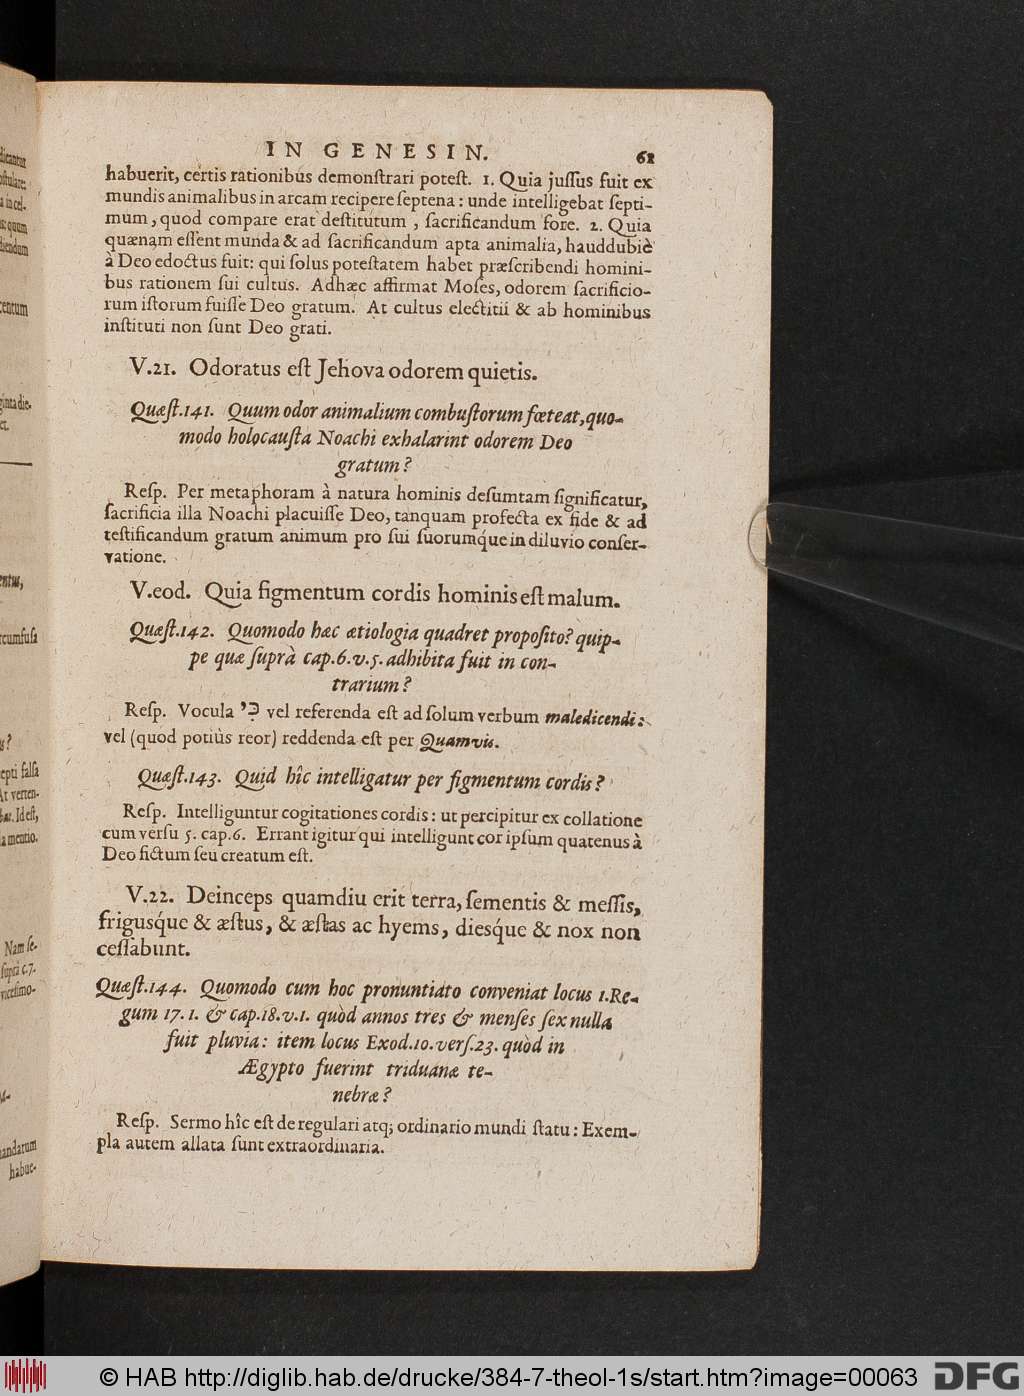 IN GENESIN. 61
habuerit, certis rationibus demonſtrari poteſt. 1. Quia juſſus fuit ex
mundis animalibus in arcam recipere ſeptena: unde intelligebat ſepti-
mum, quod compare erat deſtitutum, ſacrificandum fore. 2. Quia
quænam eſſent munda & ad ſacrificandum apta animalia, hauddubiè
à Deo edoctus fuit: qui ſolus poteſtatem habet præſcribendi homini-
bus rationem ſui cultus. Adhæc affirmat Moſes, odorem ſacrificio-
rum iſtorum fuiſſe Deo gratum. At cultus electitii & ab hominibus
inſtituti non ſunt Deo grati.
V.21. Odoratus eſt Jehova odorem quietis.
Quæſt.141. Quum odor animalium combuſtorum fœteat, quo-
modo holocauſta Noachi exhalarint odorem Deo
gratum?
Reſp. Per metaphoram à natura hominis deſumtam ſignificatur,
ſacrificia illa Noachi placuiſſe Deo, tanquam profecta ex fide & ad
teſtificandum gratum animum pro ſui ſuorumq́ue in diluvio conſer-
vatione.
V.eod. Quia figmentum cordis hominis eſt malum.
Quæſt.142. Quomodo hæc ætiologia quadret propoſito? quip-
pe quæ ſuprà cap.6.v.5. adhibita fuit in con-
trarium?
Reſp. Vocula כִּי vel referenda eſt ad ſolum verbum maledicendi:
vel (quod potiùs reor) reddenda eſt per Quamvis.
Quæſt.143. Quid hîc intelligatur per figmentum cordis?
Reſp. Intelliguntur cogitationes cordis: ut percipitur ex collatione
cum verſu 5. cap.6. Errant igitur qui intelligunt cor ipſum quatenus à
Deo fictum ſeu creatum eſt.
V.22. Deinceps quamdiu erit terra, ſementis & meſſis,
frigusq́ue & æſtus, & æſtas ac hyems, diesq́ue & nox non
ceſſabunt.
Quæſt.144. Quomodo cum hoc pronuntiato conveniat locus 1.Re-
gum 17. 1. & cap.18.v.1. quòd annos tres & menſes ſex nulla
fuit pluvia: item locus Exod.10.verſ.23. quòd in
Ægypto fuerint triduanæ te-
nebræ?
Reſp. Sermo hîc eſt de regulari atq; ordinario mundi ſtatu: Exem-
pla autem allata ſunt extraordinaria.
© HAB http://diglib.hab.de/drucke/384-7-theol-1s/start.htm?image=00063
DFG